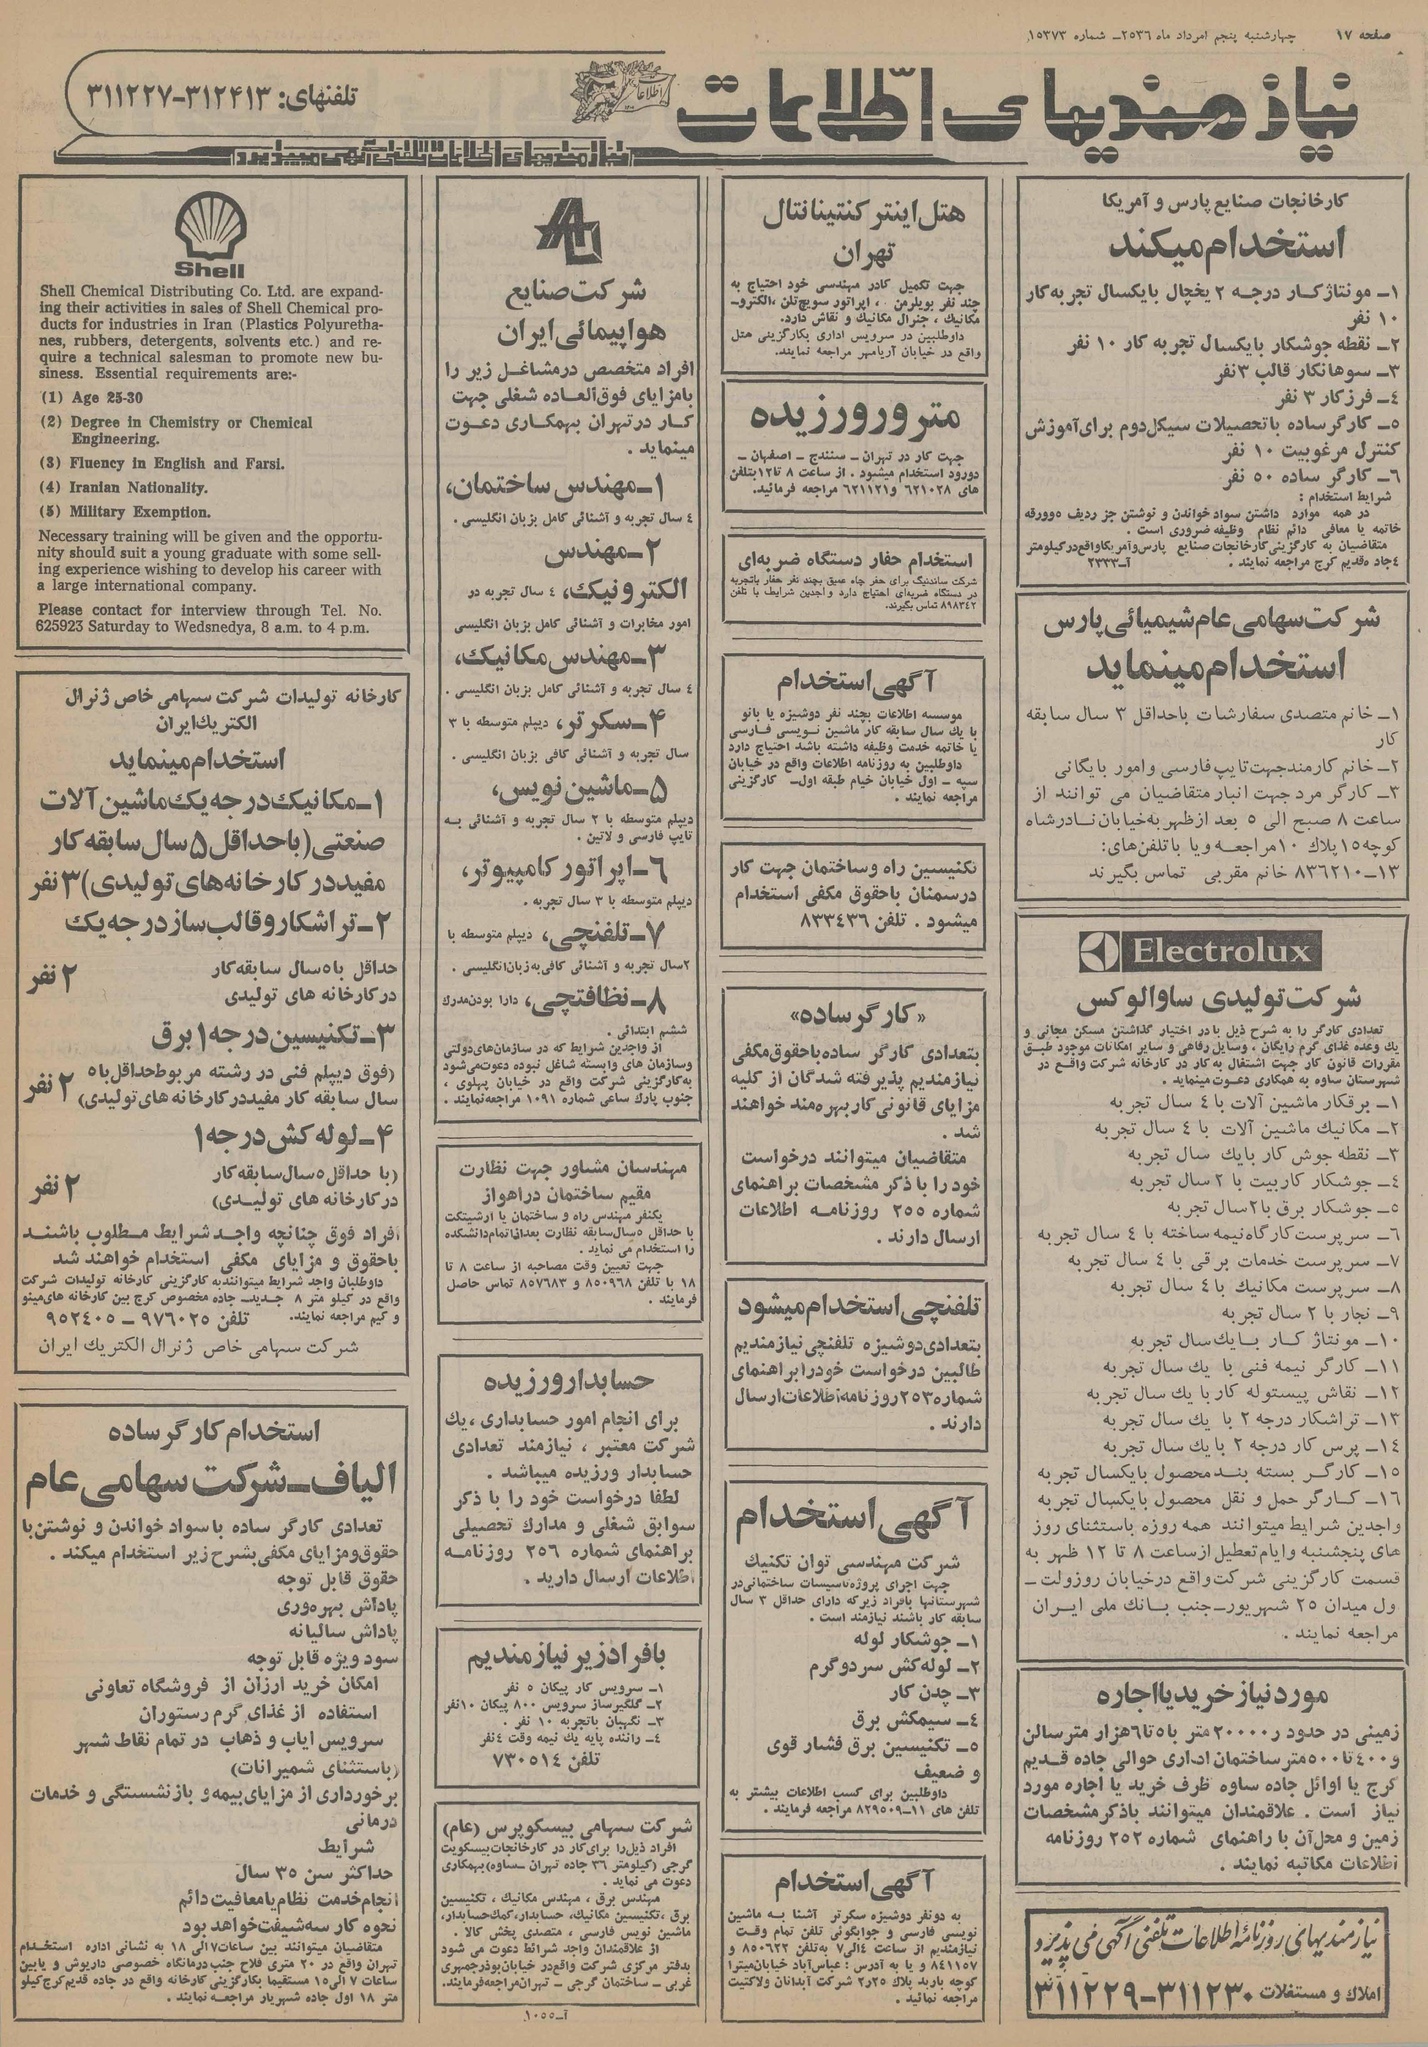 صفحه ۱۷
چهارشنبه پنجم امرداد ماه ۲۵۳۶ـ شماره ۱۵۳۷۳
نیازمندیهای اطلاعات
تلفنهای: ۳۱۲۴۱۳-۳۱۱۲۲۷
نیازمندیهای اطلاعات تلفنی آگهی میپذیرد
کارخانجات صنایع پارس و آمریکا
استخدام میکند
۱ـ مونتاژکار درجه ۲ یخچال با یکسال تجربه کار
۱۰ نفر
۲ـ نقطه جوشکار با یکسال تجربه کار ۱۰ نفر
۳ـ سوهانکار قالب ۳ نفر
٤ـ فرزکار ۳ نفر
٥ـ کارگر ساده با تحصیلات سیکل دوم برای آموزش
کنترل مرغوبیت ۱۰ نفر
٦ـ کارگر ساده ٥۰ نفر
شرایط استخدام :
در همه موارد داشتن سواد خواندن و نوشتن جز ردیف ٥ و ورقه
خاتمه یا معافی دائم نظام وظیفه ضروری است .
متقاضیان به کارگزینی کارخانجات صنایع پارس و آمریکا واقع در کیلومتر
٤ جاده قدیم کرج مراجعه نمایند . آـ۲۳۳۳
شرکت سهامی عام شیمیائی پارس
استخدام مینماید
۱ـ خانم متصدی سفارشات با حداقل ۳ سال سابقه
کار
۲ـ خانم کارمند جهت تایپ فارسی و امور بایگانی
۳ـ کارگر مرد جهت انبار متقاضیان می توانند از
ساعت ۸ صبح الی ٥ بعد از ظهر به خیابان نادرشاه
کوچه ۱٥ پلاك ۱۰ مراجعه و یا با تلفن‌های:
۱۳ـ۸۳٦۲۱۰ خانم مقربی تماس بگیرند
Electrolux
شرکت تولیدی ساوالوکس
تعدادی کارگر را به شرح ذیل با در اختیار گذاشتن مسکن مجانی و
یك وعده غذای گرم رایگان ، وسایل رفاهی و سایر امکانات موجود طبق
مقررات قانون کار جهت اشتغال به کار در کارخانه شرکت واقع در
شهرستان ساوه به همکاری دعوت مینماید .
۱ـ برقکار ماشین آلات با ٤ سال تجربه
۲ـ مکانیك ماشین آلات با ٤ سال تجربه
۳ـ نقطه جوش کار با یك سال تجربه
٤ـ جوشکار کاربیت با ۲ سال تجربه
٥ـ جوشکار برق با ۲ سال تجربه
٦ـ سرپرست کارگاه نیمه ساخته با ٤ سال تجربه
۷ـ سرپرست خدمات برقی با ٤ سال تجربه
۸ـ سرپرست مکانیك با ٤ سال تجربه
۹ـ نجار با ۲ سال تجربه
۱۰ـ مونتاژ کار با یك سال تجربه
۱۱ـ کارگر نیمه فنی با یك سال تجربه
۱۲ـ نقاش پیستوله کار با یك سال تجربه
۱۳ـ تراشکار درجه ۲ با یك سال تجربه
۱٤ـ پرس کار درجه ۲ با یك سال تجربه
۱٥ـ کارگر بسته بند محصول با یکسال تجربه
۱٦ـ کارگر حمل و نقل محصول با یکسال تجربه
واجدین شرایط میتوانند همه روزه باستثنای روز
های پنجشنبه و ایام تعطیل از ساعت ۸ تا ۱۲ ظهر به
قسمت کارگزینی شرکت واقع در خیابان روزولت ـ
ول میدان ۲٥ شهریورـ جنب بانك ملی ایران
مراجعه نمایند .
مورد نیاز خرید یا اجاره
زمینی در حدود ۲۰۰۰۰ متر با ٥ تا ٦ هزار متر سالن
و ٤۰۰ تا ٥۰۰ متر ساختمان اداری حوالی جاده قدیم
کرج یا اوائل جاده ساوه ظرف خرید یا اجاره مورد
نیاز است . علاقمندان میتوانند با ذکر مشخصات
زمین و محل آن با راهنمای شماره ۲٥۲ روزنامه
اطلاعات مکاتبه نمایند .
نیازمندیهای روزنامه اطلاعات تلفنی آگهی می پذیرد
املاك و مستغلات ۳۱۱۲۳۰-۳۱۱۲۲۹
هتل اینتر کنتیناتال
تهران
جهت تکمیل کادر مهندسی خود احتیاج به
چند نفر بویلرمن ، اپراتور سویچ‌تلن ، الکتروـ
مکانیك ، جنرال مکانیك و نقاش دارد.
داوطلبین در سرویس اداری بکارگزینی هتل
واقع در خیابان آریامهر مراجعه نمایند.
متر و ر ورزیده
جهت کار در تهران ـ سنندج ـ اصفهان ـ
دورود استخدام میشود . از ساعت ۸ تا ۱۲ بتلفن
های ٦۲۱۰۲۸ و ٦۲۱۱۲۱ مراجعه فرمائید.
استخدام حفار دستگاه ضربه‌ای
شرکت ساندتیگ برای حفر چاه عمیق بچند نفر حفار باتجربه
در دستگاه ضربه‌ای احتیاج دارد واجدین شرایط با تلفن
۸۹۸۳٤۲ تماس بگیرند.
آگهی استخدام
موسسه اطلاعات بچند نفر دوشیزه یا بانو
با یك سال سابقه کار ماشین نویسی فارسی
یا خاتمه خدمت وظیفه داشته باشد احتیاج دارد
داوطلبین به روزنامه اطلاعات واقع در خیابان
سپه ـ اول خیابان خیام طبقه اول ـ کارگزینی
مراجعه نمایند .
تکنیسین راه و ساختمان جهت کار
در سمنان با حقوق مکفی استخدام
میشود . تلفن ۸۳۳٤۳٦
«کارگر ساده»
بتعدادی کارگر ساده با حقوق مکفی
نیازمندیم پذیرفته شدگان از کلیه
مزایای قانونی کار بهره‌مند خواهند
شد .
متقاضیان میتوانند درخواست
خود را با ذکر مشخصات براهنمای
شماره ۲٥٥ روزنامه اطلاعات
ارسال دارند .
تلفنچی استخدام میشود
بتعدادی دوشیزه تلفنچی نیازمندیم
طالبین درخواست خود را براهنمای
شماره ۲٥۳ روزنامه اطلاعات ارسال
دارند .
آگهی استخدام
شرکت مهندسی توان تکنیك
جهت اجرای پروژه تاسیسات ساختمانی در
شهرستانها بافراد زیر که دارای حداقل ۳ سال
سابقه کار باشند نیازمند است .
۱ـ جوشکار لوله
۲ـ لوله کش سرد و گرم
۳ـ چدن کار
٤ـ سیمکش برق
٥ـ تکنیسین برق فشار قوی
و ضعیف
داوطلبین برای کسب اطلاعات بیشتر به
تلفن های ۱۱ـ۸۲۹٥۰۹ مراجعه فرمایند .
آگهی استخدام
به دو نفر دوشیزه سکرتر آشنا به ماشین
نویسی فارسی و جوابگوئی تلفن تمام وقت
نیازمندیم از ساعت ٤ الی ۷ به تلفن ۸٥۰٦۲۲ و
۸٤۱۱٥۷ و یا به آدرس : عباس‌آباد خیابان میترا
کوچه بارید پلاك ۲٥ر۲ شرکت آبدانان ولاکتیت
مراجعه نمائید .
شرکت صنایع
هواپیمائی ایران
افراد متخصص در مشاغل زیر را
بامزایای فوق‌العاده شغلی جهت
کار در تهران بهمکاری دعوت
مینماید .
۱ـ مهندس ساختمان،
٤ سال تجربه و آشنائی کامل بزبان انگلیسی .
۲ـ مهندس
الکترونیك، ٤ سال تجربه در
امور مخابرات و آشنائی کامل بزبان انگلیسی
۳ـ مهندس مکانیك،
٤ سال تجربه و آشنائی کامل بزبان انگلیسی .
۴ـ سکرتر، دیپلم متوسطه با ۳
سال تجربه و آشنائی کافی بزبان انگلیسی .
۵ـ ماشین نویس،
دیپلم متوسطه با ۲ سال تجربه و آشنائی به
تایپ فارسی و لاتین .
۶ـ اپراتور کامپیوتر،
دیپلم متوسطه با ۳ سال تجربه .
۷ـ تلفنچی، دیپلم متوسطه با
۲ سال تجربه و آشنائی کافی به زبان انگلیسی .
۸ـ نظافتچی، دارا بودن مدرك
ششم ابتدائی .
از واجدین شرایط که در سازمان‌های دولتی
وسازمان های وابسته شاغل نبوده دعوت می‌شود
به کارگزینی شرکت واقع در خیابان پهلوی ،
جنوب پارك ساعی شماره ۱۰۹۱ مراجعه نمایند .
مهندسان مشاور جهت نظارت
مقیم ساختمان در اهواز
یکنفر مهندس راه و ساختمان یا ارشیتکت
با حداقل ٥ سال سابقه نظارت بعد از اتمام دانشکده
را استخدام می نماید .
جهت تعیین وقت مصاحبه از ساعت ۸ تا
۱۸ با تلفن ۸٥۰۹٦۸ و ۸٥۷٦۸۳ تماس حاصل
فرمایند .
حسابدار ورزیده
برای انجام امور حسابداری ، یك
شرکت معتبر ، نیازمند تعدادی
حسابدار ورزیده میباشد .
لطفا درخواست خود را با ذکر
سوابق شغلی و مدارك تحصیلی
براهنمای شماره ۲٥٦ روزنامه
اطلاعات ارسال دارید .
بافراد زیر نیازمندیم
۱ـ سرویس کار پیکان ٥ نفر
۲ـ گلگیرساز سرویس ۸۰۰ پیکان ۱۰ نفر
۳ـ نگهبان باتجربه ۱۰ نفر .
٤ـ راننده پایه یك نیمه وقت ٤ نفر
تلفن ۷۳۰۵۱۴
شرکت سهامی بیسکوپرس (عام)
افراد ذیل را برای کار در کارخانجات بیسکویت
گرجی (کیلومتر ۳٦ جاده تهران ـ ساوه) بهمکاری
دعوت می نماید .
مهندس برق ، مهندس مکانیك ، تکنیسین
برق ، تکنیسین مکانیك، حسابدار، کمك حسابدار،
ماشین نویس فارسی ، متصدی پخش کالا .
از علاقمندان واجد شرائط دعوت می شود
بدفتر مرکزی شرکت واقع در خیابان بوذرجمهری
غربی ـ ساختمان گرجی ـ تهران مراجعه فرمایند.
آـ۱۰٥٥
Shell
Shell Chemical Distributing Co. Ltd. are expand-
ing their activities in sales of Shell Chemical pro-
ducts for industries in Iran (Plastics Polyuretha-
nes, rubbers, detergents, solvents etc.) and re-
quire a technical salesman to promote new bu-
siness. Essential requirements are:-
(1) Age 25-30
(2) Degree in Chemistry or Chemical
Engineering.
(3) Fluency in English and Farsi.
(4) Iranian Nationality.
(5) Military Exemption.
Necessary training will be given and the opportu-
nity should suit a young graduate with some sell-
ing experience wishing to develop his career with
a large international company.
Please contact for interview through Tel. No.
625923 Saturday to Wedsnedya, 8 a.m. to 4 p.m.
کارخانه تولیدات شرکت سهامی خاص ژنرال
الکتریك ایران
استخدام مینماید
۱ـ مکانیك درجه یك ماشین آلات
صنعتی (با حداقل ۵ سال سابقه کار
مفید در کارخانه‌های تولیدی) ۳ نفر
۲ـ تراشکار و قالب ساز درجه یك
حداقل با ٥ سال سابقه کار
در کارخانه های تولیدی
۲ نفر
۳ـ تکنیسین درجه ۱ برق
(فوق دیپلم فنی در رشته مربوط حداقل با ٥
سال سابقه کار مفید در کارخانه های تولیدی)
۲ نفر
۴ـ لوله کش درجه ۱
(با حداقل ٥ سال سابقه کار
در کارخانه های تولیدی)
۲ نفر
افراد فوق چنانچه واجد شرایط مطلوب باشند
با حقوق و مزایای مکفی استخدام خواهند شد
داوطلبان واجد شرایط میتوانند به کارگزینی کارخانه تولیدات شرکت
واقع در کیلو متر ۸ جدیدـ جاده مخصوص کرج بین کارخانه های مینو
و کیم مراجعه نمایند. تلفن ۹۷٦۰۲٥ ـ ۹٥۲٤۰٥
شرکت سهامی خاص ژنرال الکتریك ایران
استخدام کارگر ساده
الیاف ـ شرکت سهامی عام
تعدادی کارگر ساده با سواد خواندن و نوشتن با
حقوق و مزایای مکفی بشرح زیر استخدام میکند .
حقوق قابل توجه
پاداش بهره‌وری
پاداش سالیانه
سود ویژه قابل توجه
امکان خرید ارزان از فروشگاه تعاونی
استفاده از غذای گرم رستوران
سرویس ایاب و ذهاب در تمام نقاط شهر
(باستثنای شمیرانات)
برخورداری از مزایای بیمه و بازنشستگی و خدمات
درمانی
شرایط
حداکثر سن ۳٥ سال
انجام خدمت نظام یا معافیت دائم
نحوه کار سه شیفت خواهد بود
متقاضیان میتوانند بین ساعات ۷ الی ۱۸ به نشانی اداره استخدام
تهران واقع در ۲۰ متری فلاح جنب درمانگاه خصوصی داریوش و یا بین
ساعات ۷ الی ۱٥ مستقیما بکارگزینی کارخانه واقع در جاده قدیم کرج کیلو
متر ۱۸ اول جاده شهریار مراجعه نمایند .